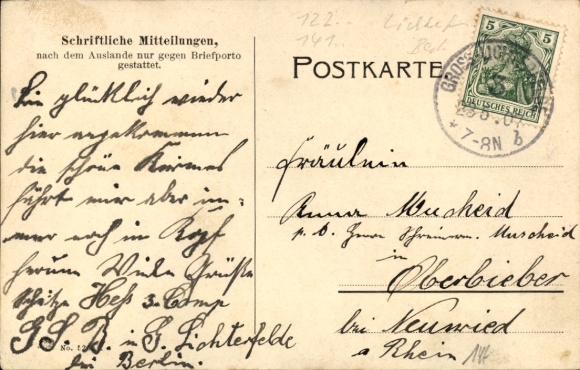 Schriftliche Mitteilungen,
nach dem Auslande nur gegen Briefporto
gestattet.
Bin glücklich wieder
hier angekommen
die schöne Kirmes
führt mir aber im-
mer noch im Kopf
herum Viele Grüße
Schütze Hess 3. Comp
G. S. B. in G. Lichterfelde
bei Berlin.
No. 12
122..
141..
POSTKARTE
5 5
DEUTSCHES REICH
GROSS-LICHTERFELDE
7-8N b
Fräulein
Anna Muscheid
p. A. Herrn Schreinerm. Muscheid
in
Oberbieber
bei Neuwied
a Rhein